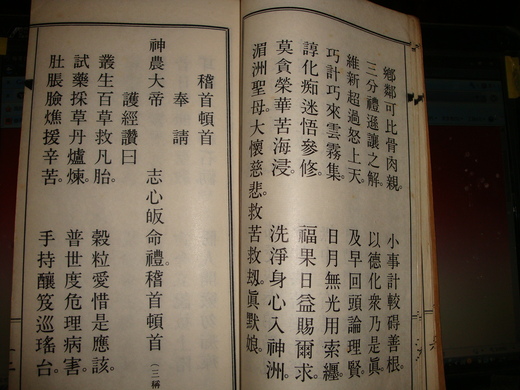 鄉鄰可比骨肉親。小事計較碍善根。
三分禮遜讓之解。以德化衆乃是眞。
維新超過怒上天。及早回頭論理賢。
巧計巧來雲霧集。日月無光用索纏。
諄化痴迷悟參修。福果日益賜爾求。
莫貪榮華苦海浸。洗淨身心入神洲。
湄洲聖母大懷慈悲。救苦救刼。眞默娘。
稽首頓首
奉請
神農大帝 志心皈命禮。稽首頓首(三稱
護經讚曰
叢生百草救凡胎。穀粒愛惜是應該。
試藥採草丹爐煉。普世度危理病害。
肚脹臉燋援辛苦。手持釀笈巡瑤台。